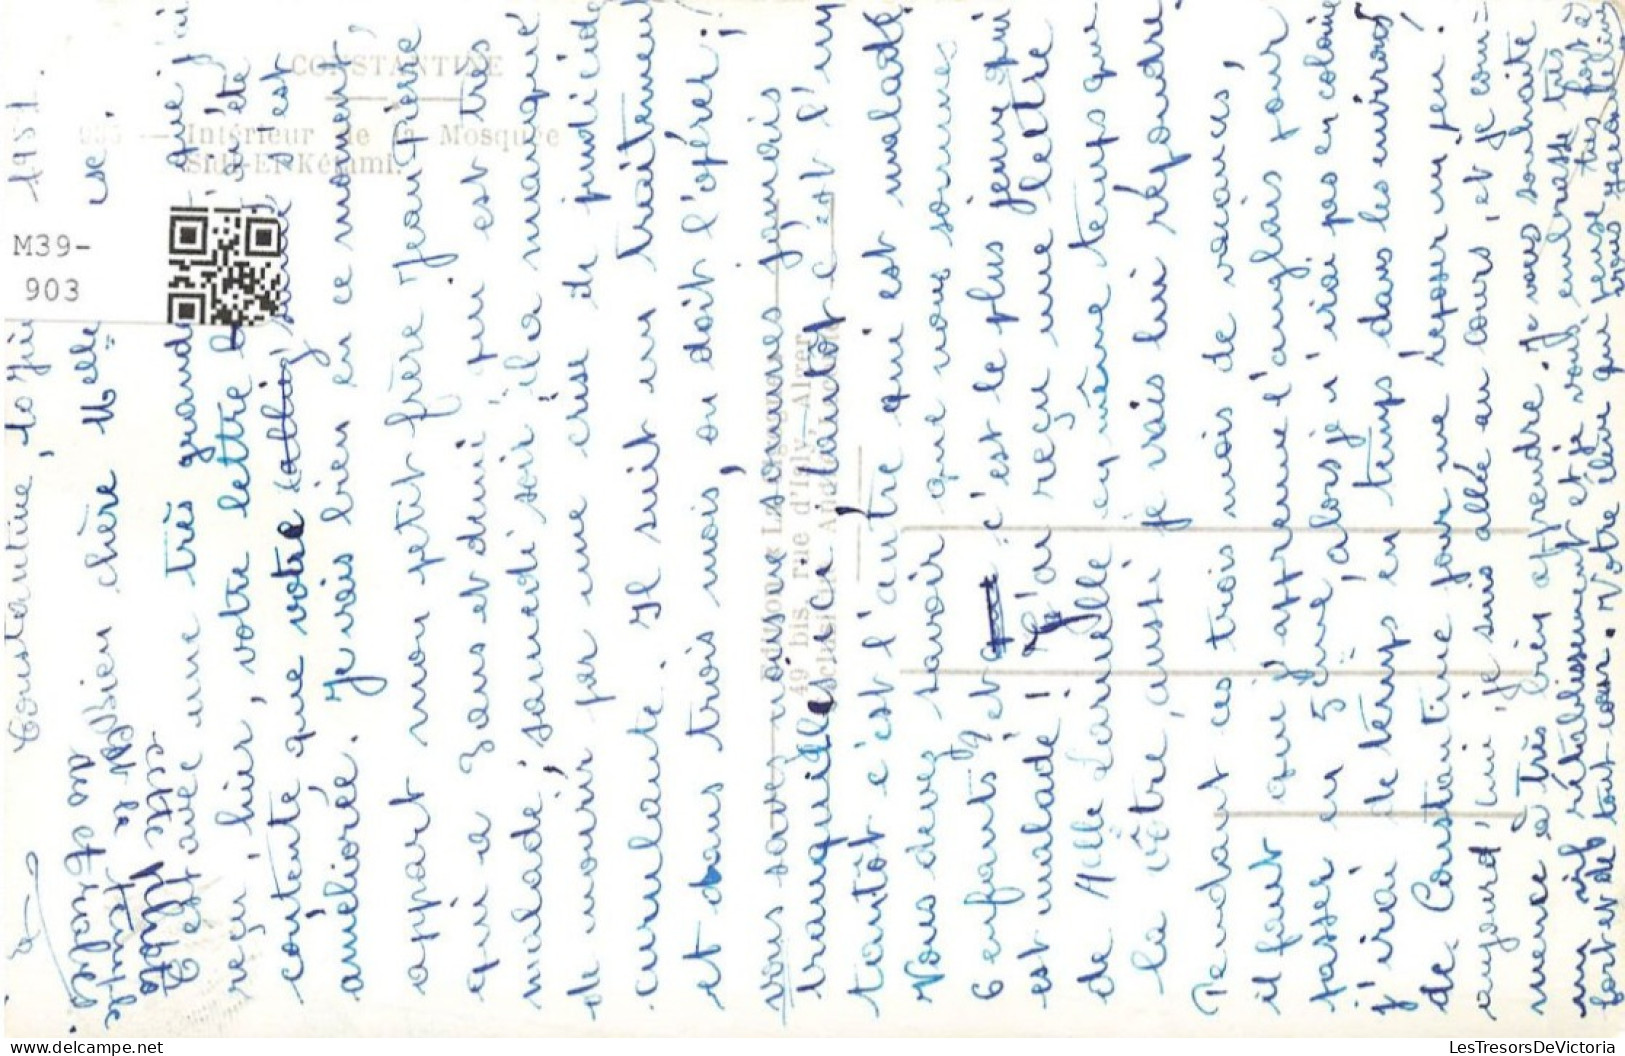 Constantine, 10 1951.
Bien chère Melle
C'est avec une très grande que j'ai
reçu, hier, votre lettre
contente que votre santé s'est
améliorée. Je vais bien en ce moment,
appart mon petit frère Jean Pierre
qui a 2 ans et demi qui est très
malade; samedi soir il a manqué
de mourir par une crise de
Il suit un traitement
et dans trois mois, on doit l'opérer;
vous savez nous ne sommes jamais
tranquilles ici tantôt c'est l'un
tantôt c'est l'autre qui est malade.
Vous devez savoir que nous sommes
6 enfants et c'est le plus jeune qui
est malade! J'ai reçu une lettre
de Melle Laruelle en même temps que
la vôtre, aussi je vais lui répondre.
Pendant ces trois mois de vacances,
il faut que j'apprenne l'anglais pour
passer en 5ème, alors je n'irai pas en colonie
j'irai de temps en temps dans les environs
de Constantine pour me reposer un peu.
aujourd'hui je suis allée au cours, et je com-
mence à très bien apprendre. Je vous souhaite
un vif rétablissement et je vous embrasse très
fort et de tout cœur. Votre élève qui pense très fort à
vous
Gardez
cette photo
CONSTANTINE
935 — Intérieur de la Mosquée
Sidi-El-Kétami.
49 bis, rue d'Isly, Alger
M39-
903
delcampe.net
LesTresorsDeVictoria